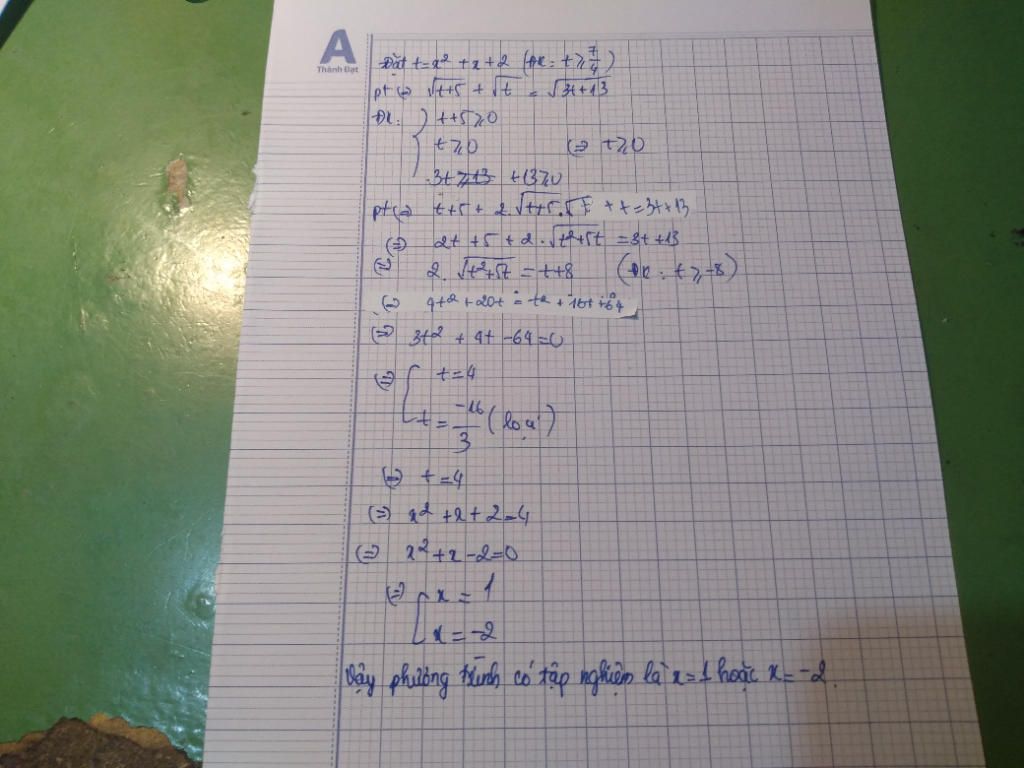 A
Thành Đạt
Đặt t = x² + x + 2 (ĐK: t ≥ 7/4)
pt ⇔ √(t+5) + √t = √(3t+13)
ĐK: { t+5 ≥ 0
t ≥ 0 ⇔ t ≥ 0
3t ≥ 13 + 13 ≥ 0
pt ⇔ t+5 + 2.√(t+5).√t + t = 3t+13
⇔ 2t + 5 + 2.√(t²+5t) = 3t+13
⇔ 2.√(t²+5t) = t+8 (ĐK: t ≥ -8)
⇔ 4t² + 20t = t² + 16t + 64
⇔ 3t² + 4t - 64 = 0
⇔ [ t = 4
t = -16/3 (loại)
⇔ t = 4
⇔ x² + x + 2 = 4
⇔ x² + x - 2 = 0
⇔ [ x = 1
x = -2
Vậy phương trình có tập nghiệm là x = 1 hoặc x = -2.